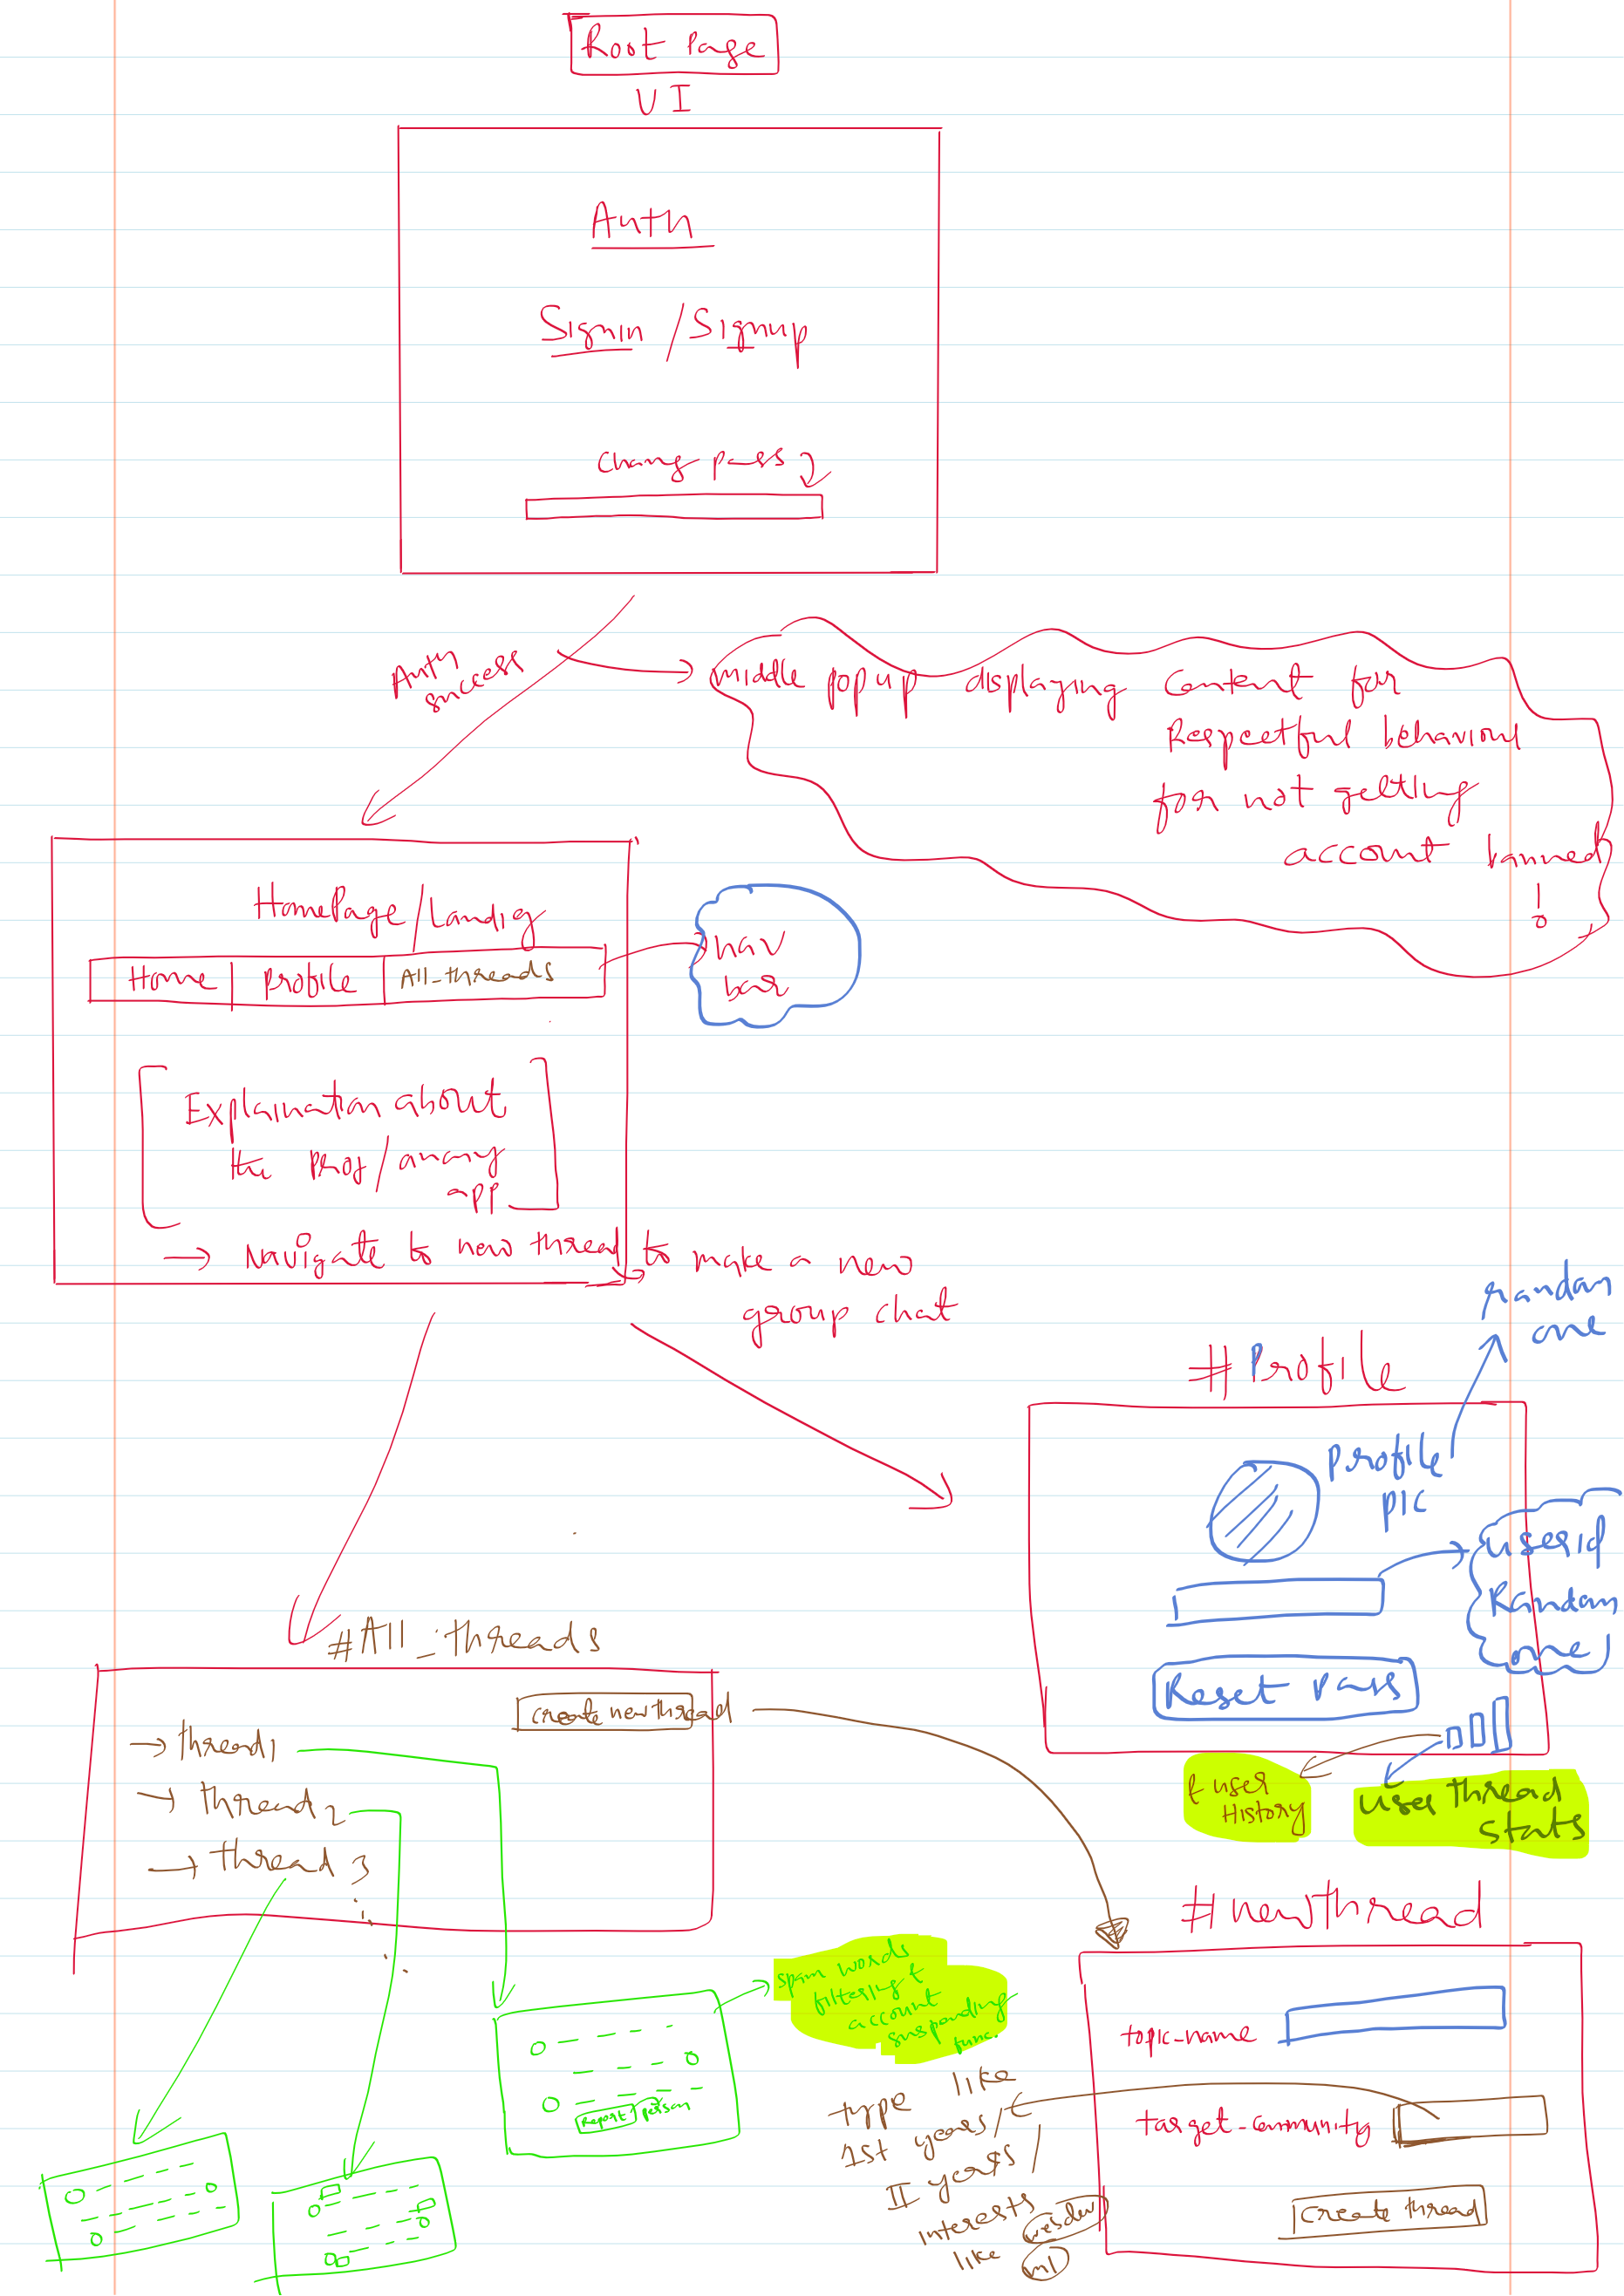 Root Page
UI
Auth
Signin / Signup
Chang pass
Auth success
middle popup displaying Content for
Respectful behaviour
for not getting
account banned
!
HomePage/Landig
Home Profile All-threads
nav
bar
Explaination about
the proj/anony
app
→ Navigate to new thread to make a new
group chat
random
one
#Profile
Profile
pic
userid
Random
one
Reset Pass
& user
History
User thread
stats
#All_threads
create new thread
→ thread1
→ thread2
→ thread 3
#newthread
spam words
filtering &
account
suspanding
func.
Report person
topic-name
target-community
create thread
type like
1st years/
II years/
interests
like webdev
ml